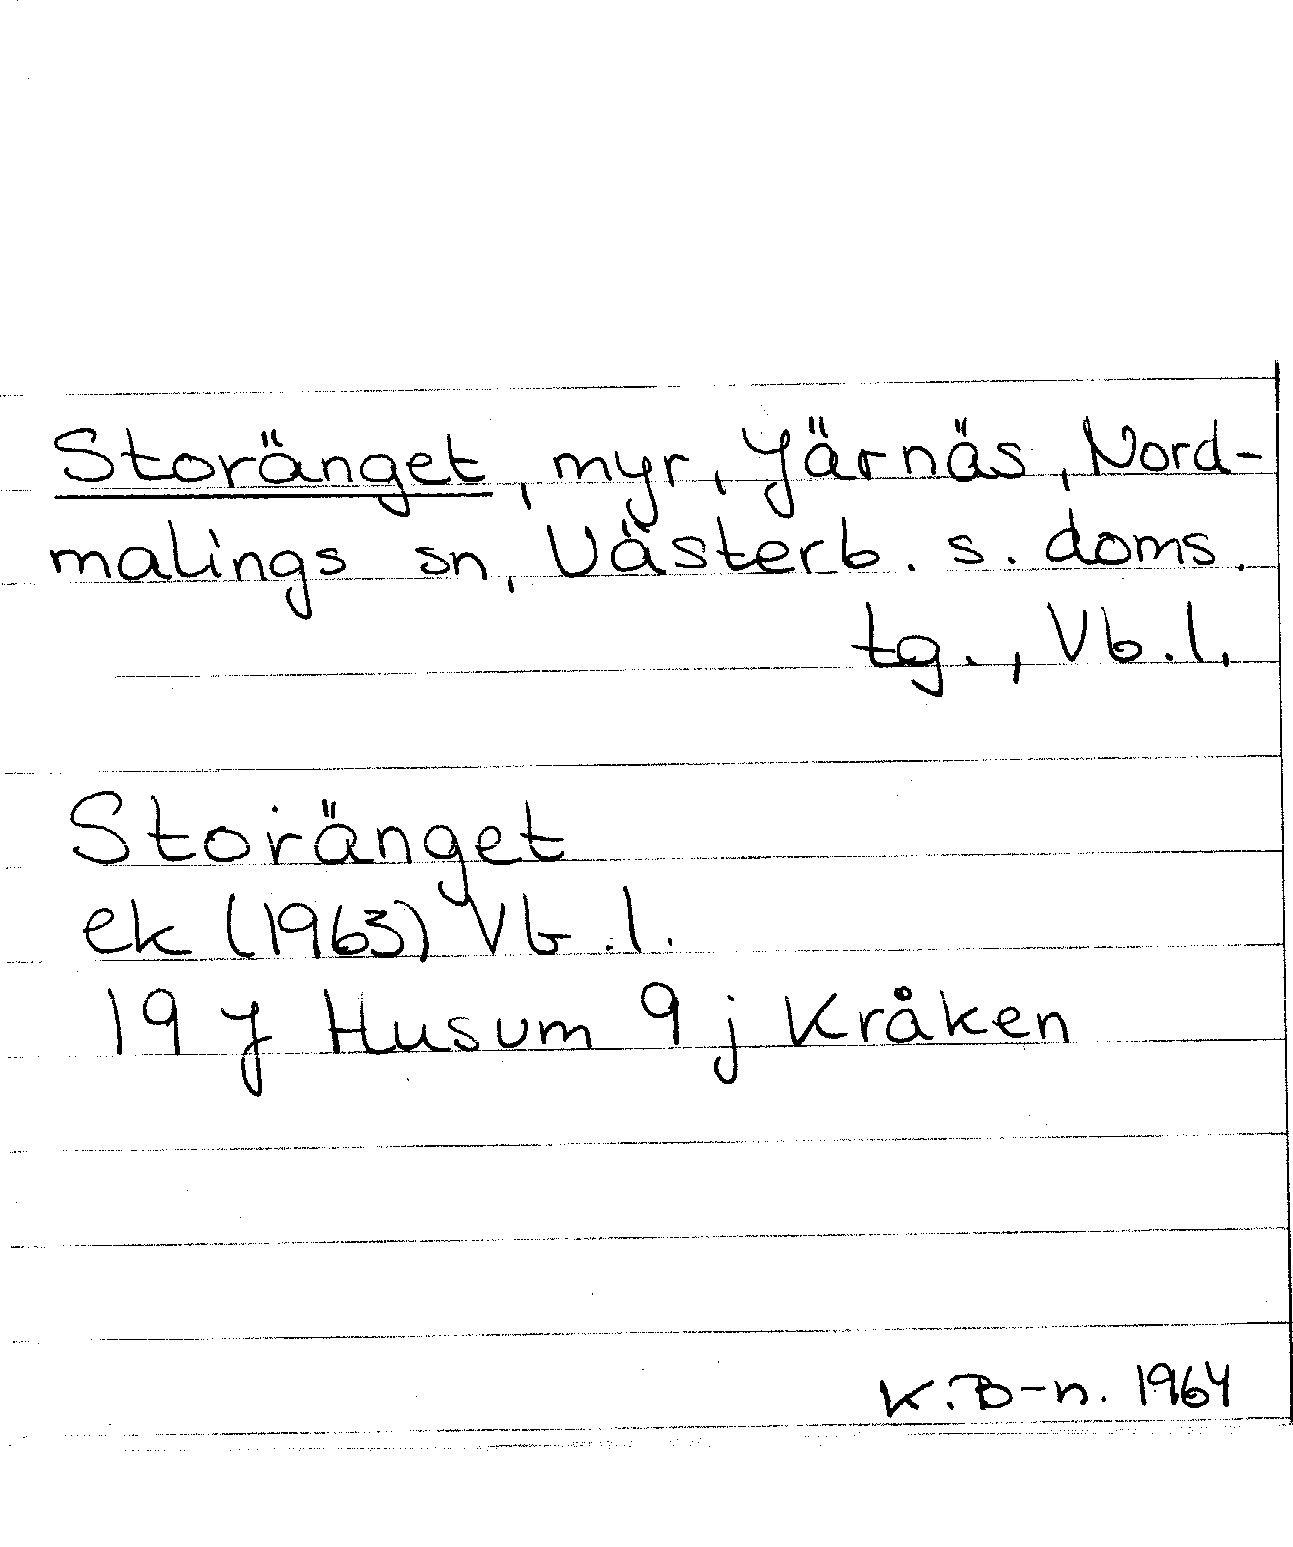 Storänget, myr, Järnäs, Nord-
malings sn, Västerb. s. doms.
tg., Vb. l.
Storänget
ek (1963) Vb. l.
19 J Husum 9 j Kråken
K. B-n. 1964